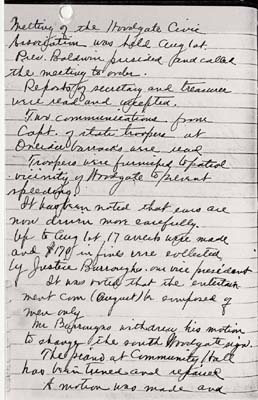 Meeting of the Woodgate Civic
Association was held Aug 1st.
Pres. Baldwin presided and called
the meeting to order.
Reports of secretary and treasurer
were read and accepted.
Two communications from
Capt. of state troopers at
Oneida barracks were read
Troopers were furnished to patrol
vicinity of Woodgate to prevent
speeding.
It has been noted that cars are
now driven more carefully.
Up to Aug 1st, 17 arrests were made
and $170 in fines were collected
by Justice Burroughs, our vice president
It was voted that the entertain
ment com (August) be composed of
men only
Mr Burroughs withdrew his motion
to change the south Woodgate sign.
The piano at Community Hall
has been tuned and repaired
A motion was made and